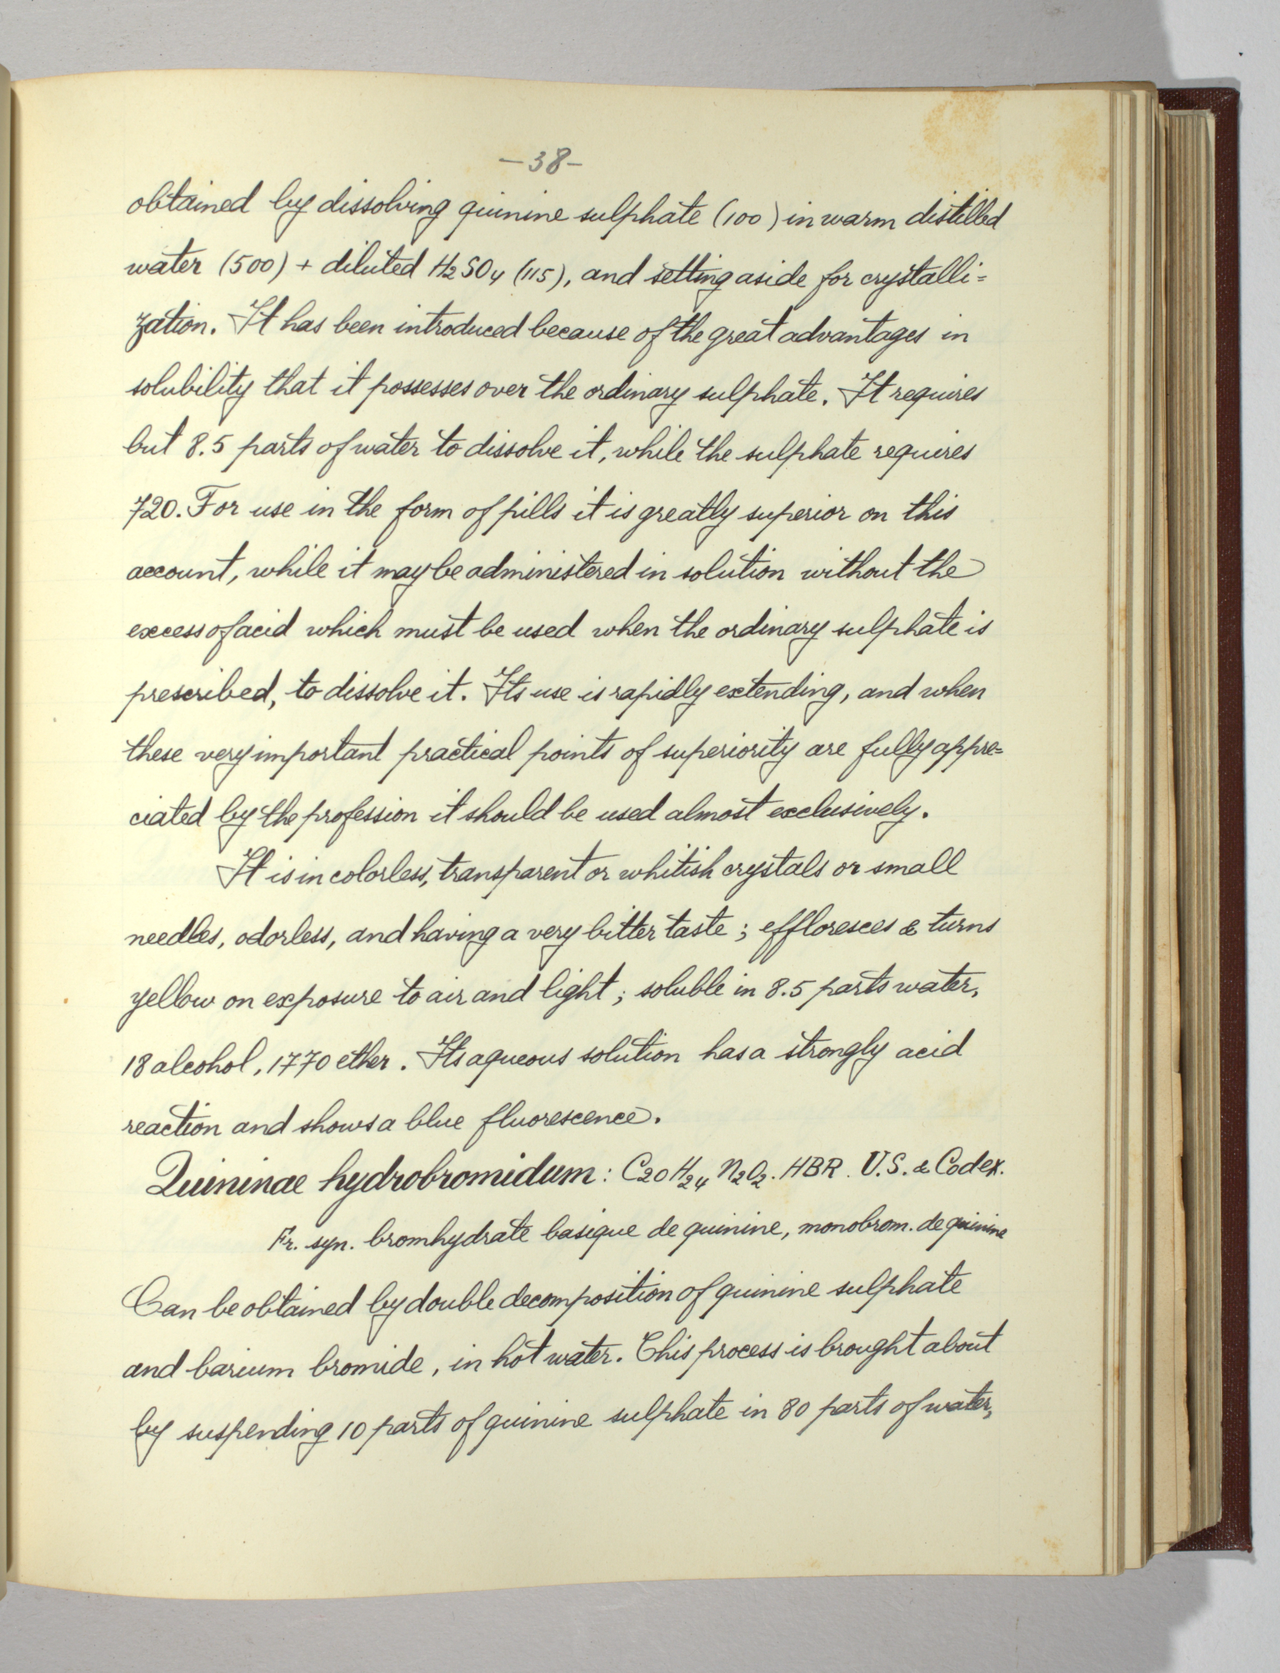 —38—
obtained by dissolving quinine sulphate (100) in warm distilled
water (500) + diluted H₂SO₄ (115), and setting aside for crystalli=
zation. It has been introduced because of the great advantages in
solubility that it possesses over the ordinary sulphate. It requires
but 8.5 parts of water to dissolve it, while the sulphate requires
720. For use in the form of pills it is greatly superior on this
account, while it may be administered in solution without the
excess of acid which must be used when the ordinary sulphate is
prescribed, to dissolve it. Its use is rapidly extending, and when
these very important practical points of superiority are fully appre=
ciated by the profession it should be used almost exclusively.
It is in colorless, transparent or whitish crystals or small
needles, odorless, and having a very bitter taste; effloresces & turns
yellow on exposure to air and light; soluble in 8.5 parts water,
18 alcohol, 1770 ether. Its aqueous solution has a strongly acid
reaction and shows a blue fluorescence.
Quininae hydrobromidum: C₂₀H₂₄N₂O₂. HBR. U.S. & Codex.
Fr. syn. bromhydrate basique de quinine, monobrom. de quinine
Can be obtained by double decomposition of quinine sulphate
and barium bromide, in hot water. This process is brought about
by suspending 10 parts of quinine sulphate in 80 parts of water,